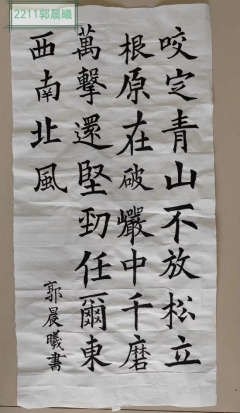 2211郭晨曦
咬定青山不放松立
根原在破巖中千磨
萬擊還堅勁任爾東
西南北風
郭晨曦書